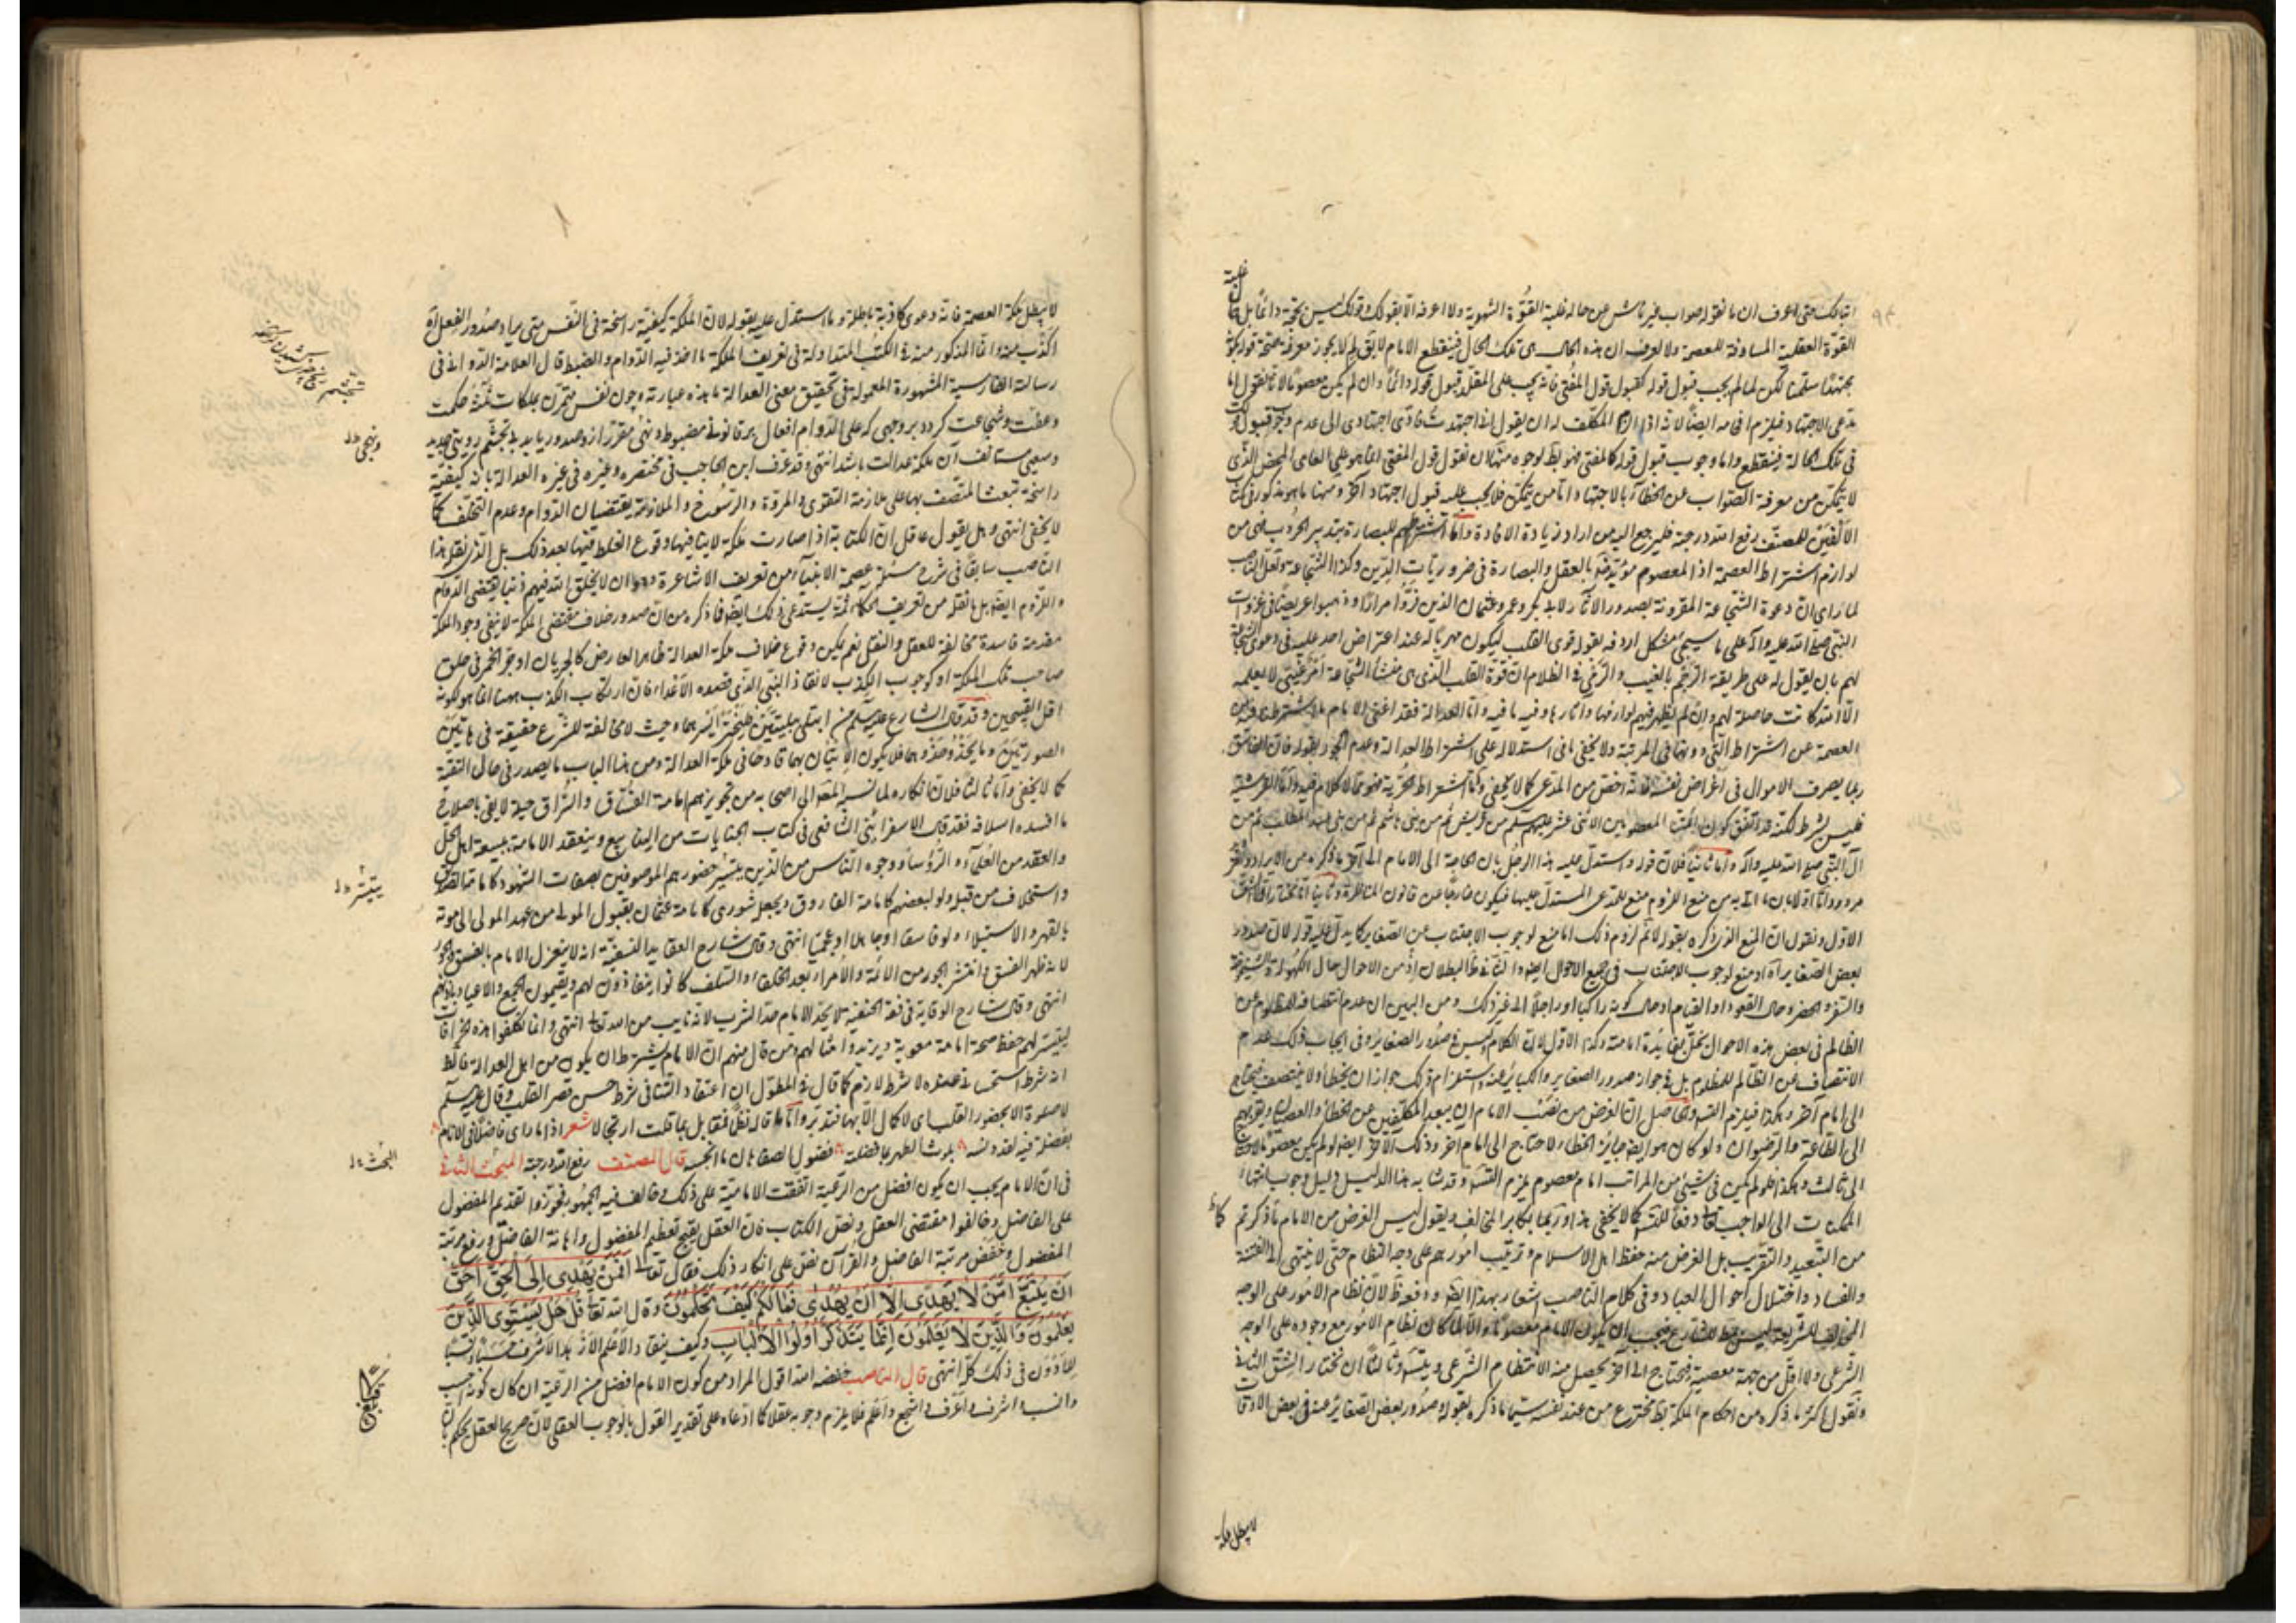 اتباعك حتى اعرف ان ما تقوله صواب غير ناش عن حالة غلبة القوة الشهوية ولا اعرفه الا بقولك وقولك ليس بحجة دائما بل
القوة العقلية المساوقة للعصمة ولا يعرف ان هذه الحال هي تلك الحال فينقطع الامام لا يق لم لا يجوز معرفة صحة قوله بكونه
مجتهدا سلمنا لكن لما لم يجب قبول قوله كقبول قول المفتي فانه يجب على المقلد قبول قوله دائما وان لم يكن معصوما لانا نقول اما
مدعى الاجتهاد فيلزم افحامه ايضا لانه اذا المكلف له ان يقول اني اجتهدت فادى اجتهادي الى عدم وجوب قبول قولك
في تلك الحالة فينقطع واما وجوب قبول قوله كالمفتي فهو بط لوجوه منها لان نقول قول المفتي انما هو على العامي المحض الذي
لا يتمكن من معرفة الصواب عن الخطأ بالاجتهاد اما من يتمكن فلا يجب عليه قبول اجتهاد اخر ومنها ما هو مذكور في كتاب
الالفين للمصنف رفع الله درجته فليرجع اليه من اراد زيادة الافادة واما اشتراطهم للبصارة بتدبير الحروب فهي من
لوازم اشتراط العصمة اذ المعصوم مؤيد بالعقل والبصارة في ضروريات الدين وكذا الشجاعة ولعل الناصب
لما راى ان دعوة الشجاعة المقرونة بصدور الآثار لابي بكر وعمر وعثمان الذين فروا مرارا وذهبوا عريضا في غزوات
النبي صلى الله عليه وآله على ما سيجئ مشكل اردفه بقوله قوي القلب ليكون مهربا له عند اعتراض احد عليه في دعوى الشجاعة
لهم بان يقول له على طريقة الرجم بالغيب والرمي في الظلام ان قوة القلب الذي هي منشأ الشجاعة امر غيبي لا يعلمه
الا الله كانت حاصلة لهم وان لم يظهر فيهم لوازمها واثارها وفيه ما فيه واما العدالة فقد اغنى الامام ما اشترطنا فيه من
العصمة عن اشتراط التي دونها في المرتبة ولا يخفى ما في استدلاله على اشتراط العدالة وعدم الجور بقوله فان الفاسق
ربما يصرف الاموال في اغراض نفسه فانه اخص من المدعى كما لا يخفى واما اشتراط الحرية فهو مما لا كلام فيه واما القرشية
فليس بشرط لكنه قد اتفق كون ائمتنا المعصومين الاثني عشر عليهم سلم من قريش ثم من بني هاشم ثم من بني عبد المطلب ثم من
آل النبي صلى الله عليه وآله واما ثانيا فلان قوله واستدل عليه هذا الرجل بان الحاجة الى الامام الى آخر ما ذكره من الايراد
مردود اما اولا فلان ما اتى به من منع اللزوم منع للمدعى المستدل عليها فيكون خارجا عن قانون المناظرة وثانيا انا نختار الشق
الاول ونقول ان المنع الذي ذكره بقوله لا ثم لزوم ذلك اما منع لوجوب الاجتناب عن الصغاير كما يدل عليه قوله لان صدور
بعض الصغاير آه او منع لوجوب الاجتناب في جميع الاحوال ايضا والثاني ظ البطلان اذ من الاحوال حال الكهولة والشيخوخة
والسفر والحضر وحال القعود او القيام او حال كونه راكبا او راجلا الى غير ذلك ومن البين ان عدم انتصافه للمظلوم من
الظالم في بعض هذه الاحوال يخل بفايدة امامته وكذا الاول لان الكلام ليس في صدور الصغاير وفي ايجاب ذلك عدم
الانتصاف من الظالم للمظلوم بل في جواز صدور الصغاير والكباير عنه واستلزام ذلك جواز ان يخطأ ولا ينتصف فيحتاج
الى امام آخر وهكذا فيلزم التس وحاصل ان الغرض من نصب الامام ان يبعد المكلفين عن الخطأ والعصيان ويقربهم
الى الطاعة والرضوان ولو كان هو ايضا جايز الخطأ لاحتاج الى امام اخر وذلك الآخر ايضا لو لم يكن معصوما لاحتاج
الى ثالث وهكذا فلو لم يكن في شيئ من المراتب امام معصوم يلزم التس وقد شابه هذا الدليل دليل وجوب انتهاء
الممكنات الى الواجب تعالى دفعا للتس كما لا يخفى هذا وربما يكابر المخالف ويقول ليس الغرض من الامام ما ذكرتم
من التبعيد والتقريب بل الغرض منه حفظ اهل الاسلام وترتيب امورهم على وجه النظام حتى لا ينتهي الى الفتنة
والفساد واختلال احوال العباد وفي كلام الناصب اشعار بهذا ايضا ودفعه ظ لان نظام الامور على الوجه
المخالف للشريعة ليس مط للشارع فيجب ان يكون الامام معصوما والا لما كان نظام الامور مع وجوده على الوجه
الشرعي ولا اقل من جهة معصيته فيحتاج الى اخر يحصل منه الانتظام الشرعي ويتس وثالثا ان نختار الشق الثاني
ونقول اكثر ما ذكره من احكام الملكة بط مخترع من عند نفسه سيما ما ذكره بقوله وصدور بعض الصغاير عنه في بعض الاوقات
لا يبطل ملكة
لا يبطل ملكة العصمة فانه دعوى كاذبة باطلة وما استدل عليه بقوله لان الملكة كيفية راسخة في النفس متى يراد صدور الفعل
اكذب منه وانما المذكور منه في الكتب المتداولة في تعريف الملكة ما اخذ فيه الدوام والضبط قال العلامة الدواني في
رسالته الفارسية المشهورة المعمولة في تحقيق معنى العدالة ما هذه عبارته وچون نفس متمرن بملكات ثلثه حكمت
وعفت وشجاعت كردد بر وجهى كه على الدوام افعال بر قانونى مضبوط ونهجى مقرر از وصدور يابد بى تجشم رويتى جديد
وسعيى مستانف آن ملكه عدالت باشد انتهى وقد عرف ابن الحاجب في مختصره وغيره في غيره العدالة بانه كيفية
راسخة تبعث المتصف بها على ملازمة التقوى والمروة والرسوخ والملازمة يقتضيان الدوام وعدم التخلف كما
لا يخفى انتهى وهل يقول عاقل ان الكتابة اذا صارت ملكة لا ينافيها وقوع الغلط فيها بعد ذلك بل الذي نقله هذا
الناصب سابقا في شرح مسئلة عصمة الانبياء من تعريف الاشاعرة وهو ان لا يخلق الله فيهم ذنبا يقتضي الدوام
واللزوم ايضا بل ما نقله من تعريف الحكماء ثمة يستدعي ذلك ايضا فما ذكره من ان صدور خلاف مقتضى الملكة لا ينفي وجود الملكة
مقدمة فاسدة مخالفة للعقل والنقل نعم يمكن وقوع خلاف ملكة العدالة ظاهرا لعارض كالجريان او جر الخمر في حلق
صاحب تلك الملكة او كوجوب الكذب لانقاذ النبي الذي قصده الاعداء فان ارتكاب الكذب ههنا انما هو لكونه
اقل القبيحين وقد قال الشارع عليه سلم من ابتلى ببليتين فليختر ايسرهما وحيث لا مخالفة للشرع حقيقة في هاتين
الصورتين وما يحذو حذوهما فلا يكون الاتيان بهما قادحا في ملكة العدالة ومن هذا الباب ما يصدر في حال التقية
كما لا يخفى واما ثالثا فلان انكاره لما نسبه المص الى اصحابه من تجويزهم امامة الفساق والسراق حيلة لا يفي باصلاح
ما افسده اسلافه فقد قال الاسفرائني الشافعي في كتاب الجنايات من الينابيع وينعقد الامامة ببيعة اهل الحل
والعقد من العلماء والرؤساء ووجوه الناس من الذين يتيسر حضورهم الموصوفين بصفات الشهود كامامة الصديق
واستخلاف من قبله ولو لبعضهم كامامة الفاروق ويجعل شورى كامامة عثمان بقبول المولى من عهد المولى الى موته
بالقهر والاستيلاء ولو فاسقا او جاهلا او عجميا انتهى وقال شارح العقايد النسفية انه لا ينعزل الامام بالفسق والجور
لانه ظهر الفسق وانتشر الجور من الائمة والامراء بعد الخلفاء والسلف كانوا ينقادون لهم ويقيمون الجمع والاعياد باذنهم
انتهى وقال شارح الوقاية في فقه الحنفية لا يحد الامام حد الشرب لانه نايب من الله تعالى انتهى وانما تكلفوا هذه الخرافات
ليتيسر لهم حفظ صحة امامة معوية ويزيد وامثالهم ومن قال منهم ان الامام يشترط ان يكون من اهل العدالة فالظ
انه شرط استحسانى عنده لا شرط لازم كما قال في المطول ان اعتقاد التنافي شرط حسن قصر القلب وقال عليه سلم
لا صلوة الا بحضور القلب اي لا كمال الا بها فتدبر واما ما قاله نظما فمقابل بما قلت ارتجالا شعر اذا ما راى فاضلا في الانام
بفضلة فيه لقد دنسه يلوث الطهر بما فضلت فضول لصفاهان ما انجسه قال المصنف رفع الله درجته المبحث الثاني
في ان الامام يجب ان يكون افضل من الرعية اتفقت الامامية على ذلك وخالف فيه الجمهور فجوزوا تقديم المفضول
على الفاضل وخالفوا مقتضى العقل ونص الكتاب فان العقل يقبح تعظيم المفضول واهانة الفاضل ورفع مرتبة
المفضول وخفض مرتبة الفاضل والقرآن نص على انكار ذلك فقال تعالى افمن يهدي الى الحق احق
ان يتبع امن لا يهدي الا ان يهدى فما لكم كيف تحكمون وقال الله تعالى قل هل يستوي الذين
يعلمون والذين لا يعلمون انما يتذكر اولوا الالباب وكيف ينقاد الاعلم الازهد الاشرف حسبا ونسبا
للادون في ذلك كله انتهى قال الناصب خفضه الله اقول المراد من كون الامام افضل من الرعية ان كان كونه احسب
وانسب واشرف واعرف واشجع واعلم فلا يلزم وجوبه عقلا كما ادعاه على تقدير القول بالوجوب العقلي لان صريح العقل يحكم بان